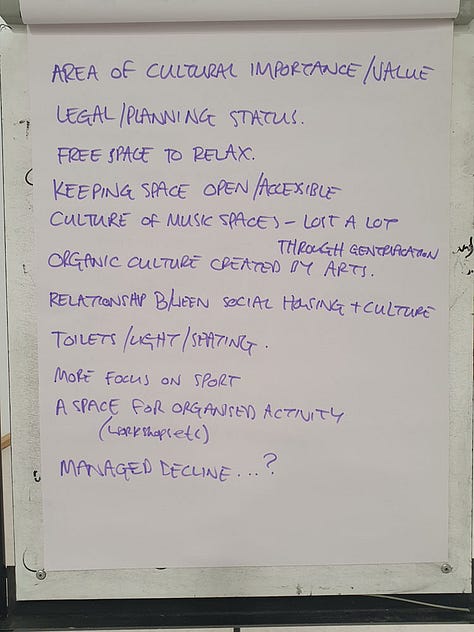 AREA OF CULTURAL IMPORTANCE/VALUE
LEGAL/PLANNING STATUS.
FREE SPACE TO RELAX.
KEEPING SPACE OPEN/ACCEXIBLE
CULTURE OF MUSIC SPACES - LOST A LOT
THROUGH GENTRIFICATION
ORGANIC CULTURE CREATED BY ARTS.
RELATIONSHIP B/WEEN SOCIAL HOUSING + CULTURE
TOILETS/LIGHT/SEATING.
MORE FOCUS ON SPORT
A SPACE FOR ORGANISED ACTIVITY
(workshops etc)
MANAGED DECLINE...?